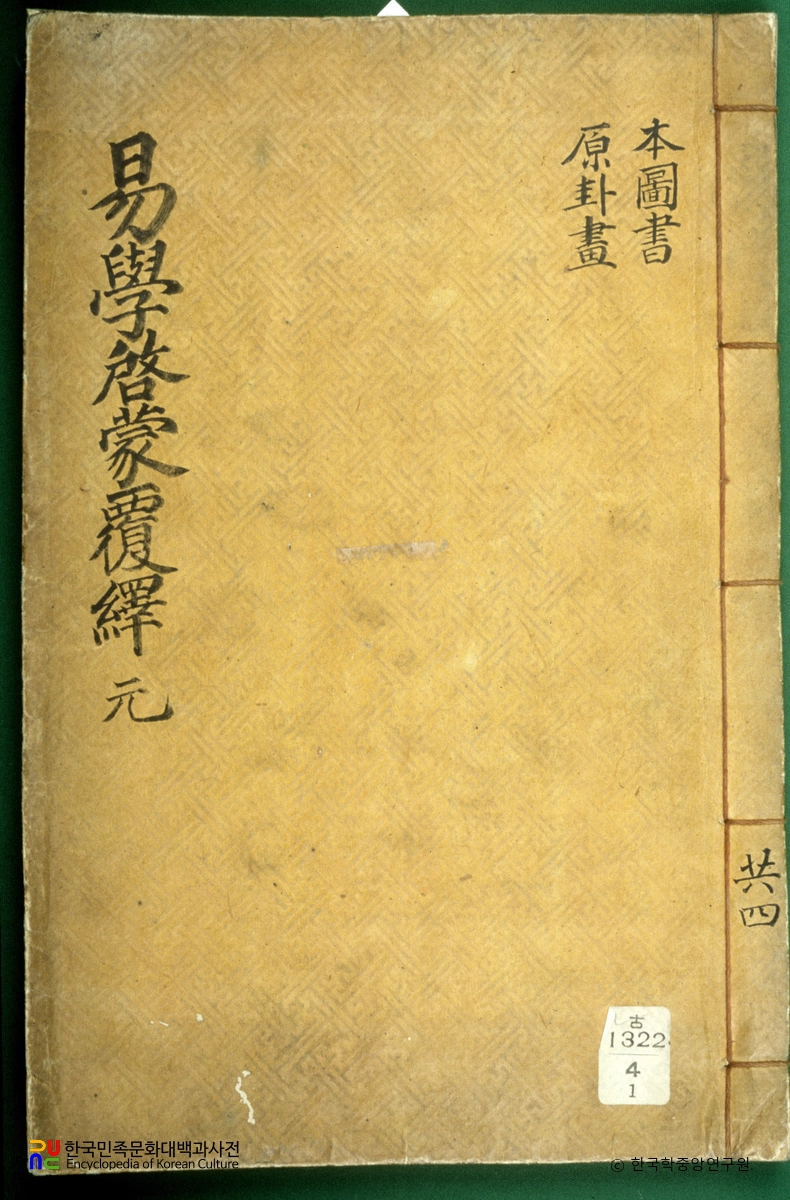 本圖書
原卦畫
易學啓蒙覆繹 元
共四
古
1322
4
1
한국민족문화대백과사전
Encyclopedia of Korean Culture
© 한국학중앙연구원